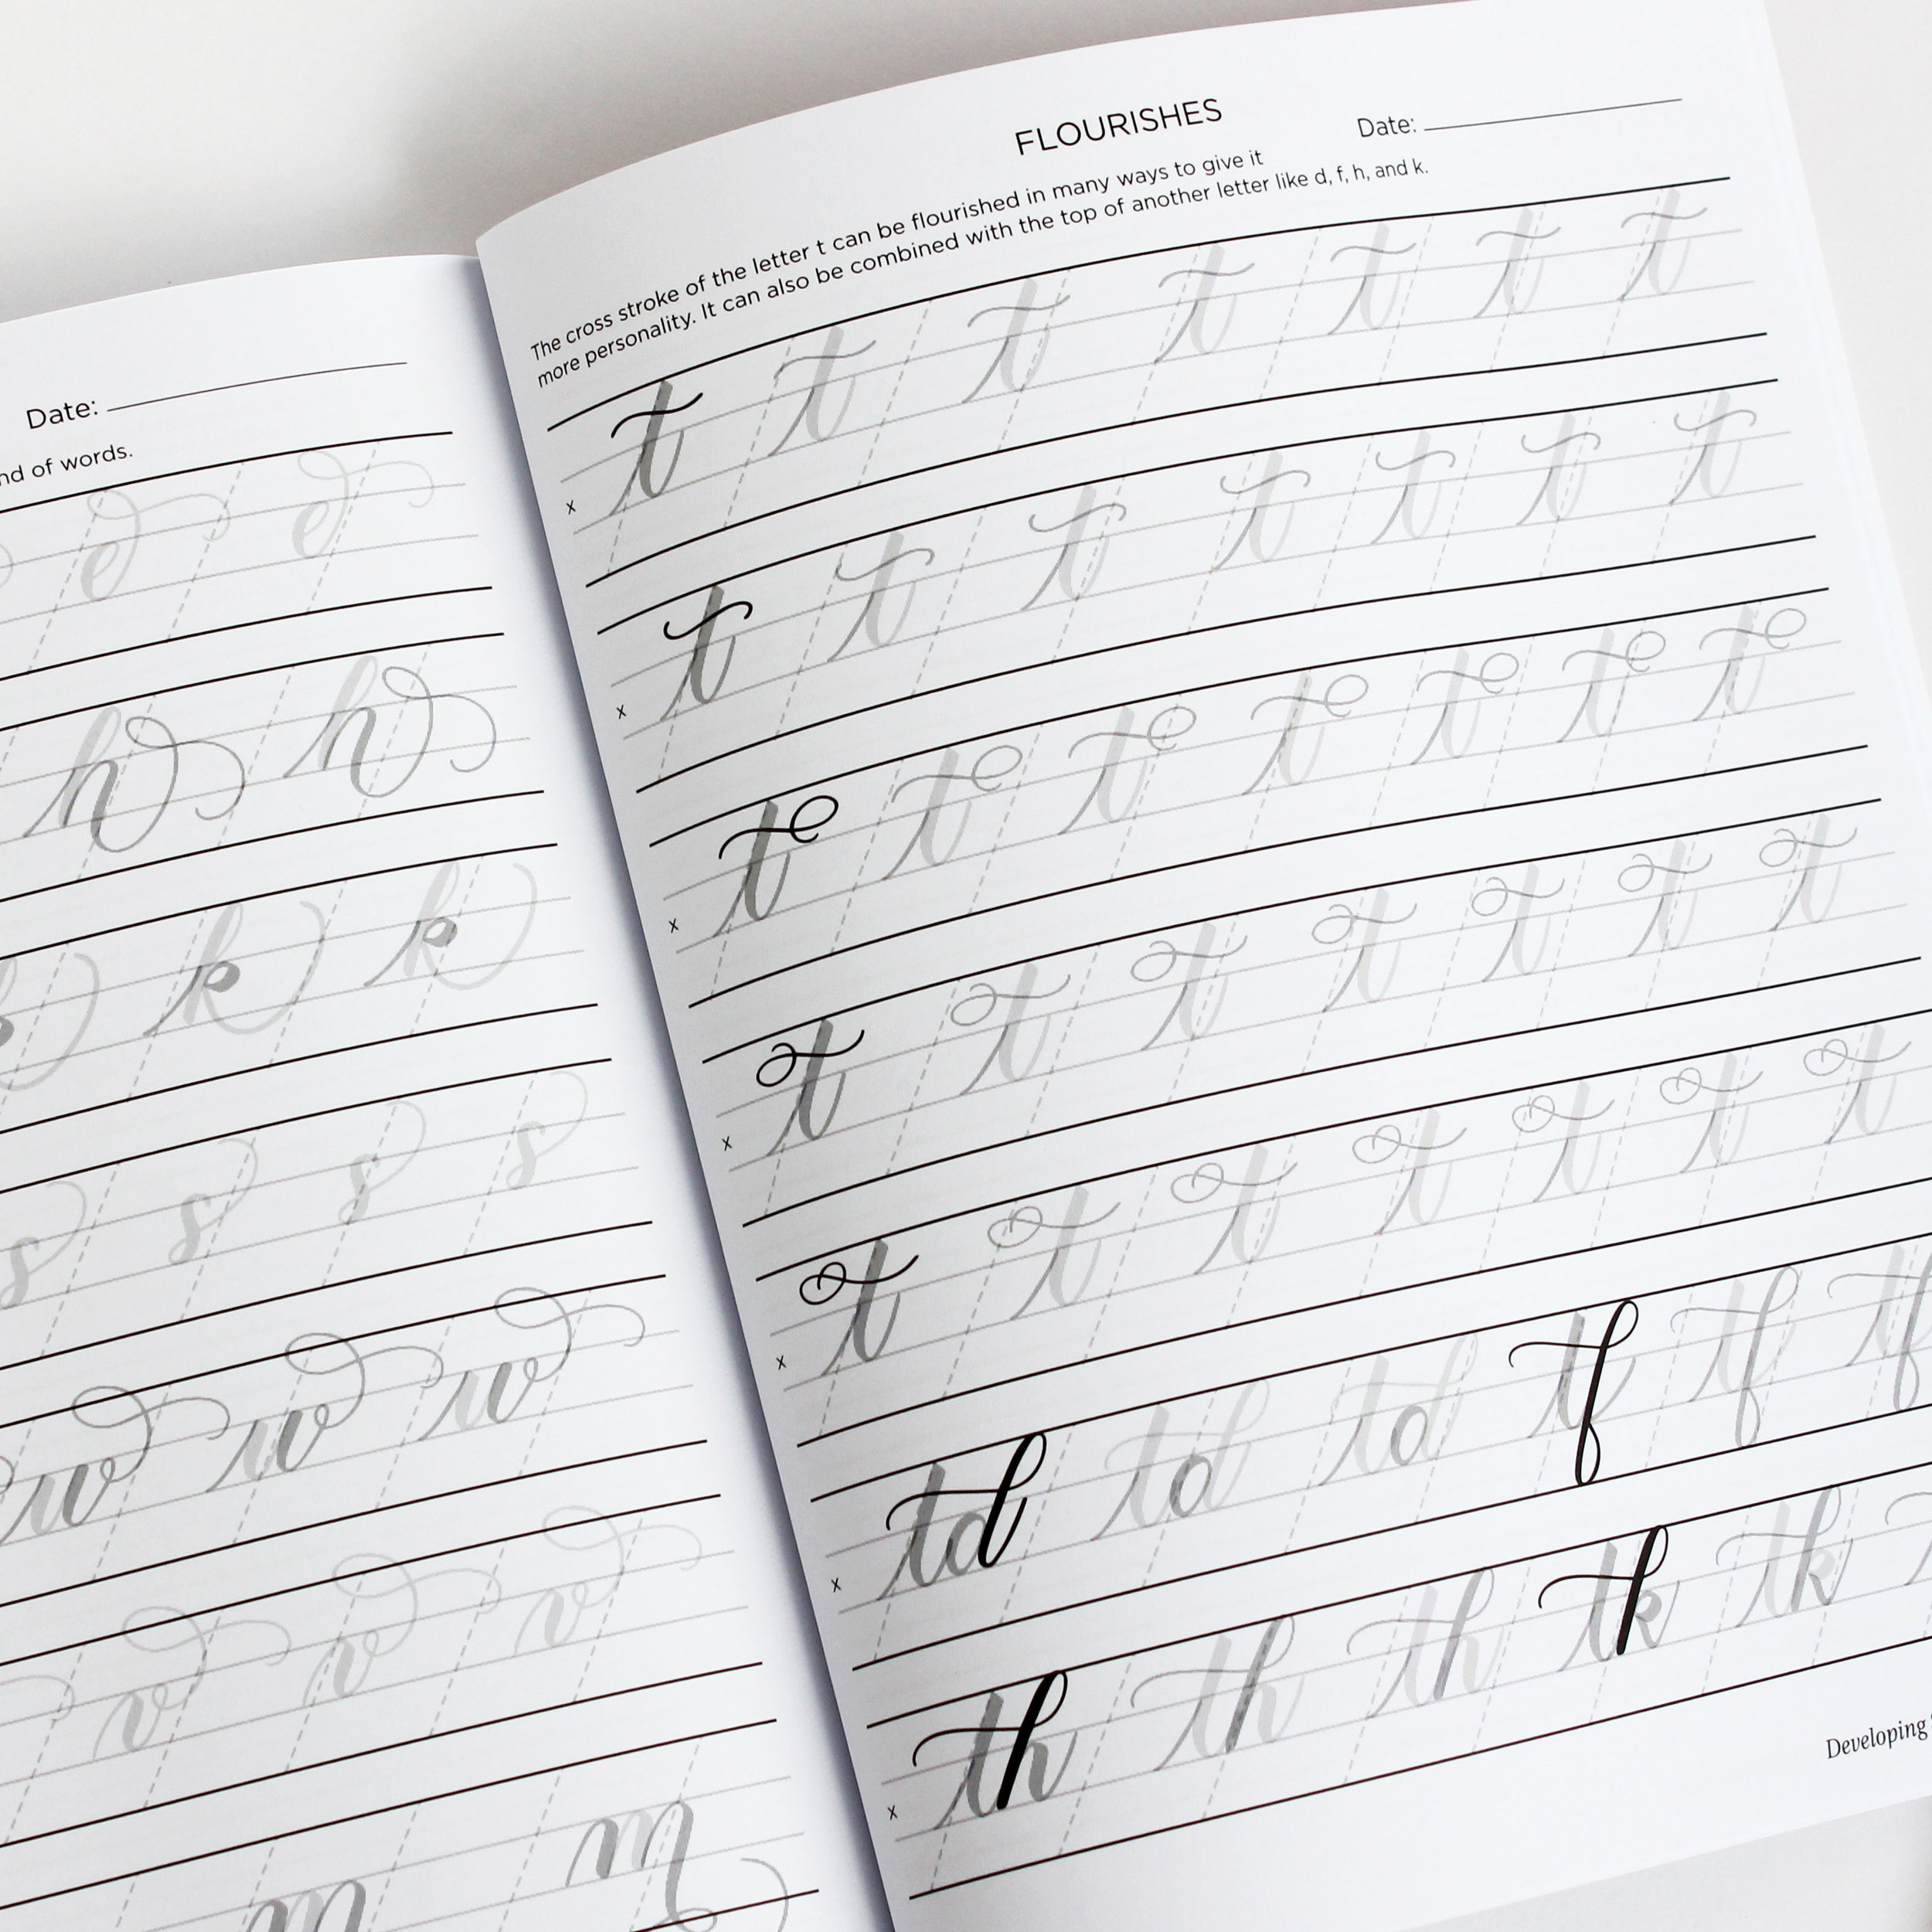 Date:
nd of words.
e e
h h
k k
s s s s
w w w
v v v
m m
FLOURISHES
Date:
The cross stroke of the letter t can be flourished in many ways to give it
more personality. It can also be combined with the top of another letter like d, f, h, and k.
x t t t t t t t
x t t t t t t t
x t t t t t t t
x t t t t t t t
x t t t t t t t
x td td td tf tf tf
x th th th tk tk
Developing